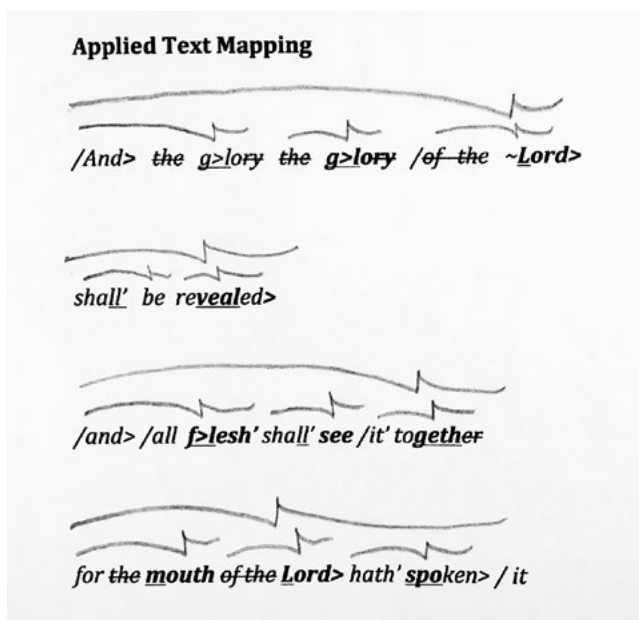 Applied Text Mapping
/And> the g>lory the g>lory /of the ~Lord>
shall' be revealed>
/and> /all f>lesh' shall' see /it' together
for the mouth of the Lord> hath' spoken> / it